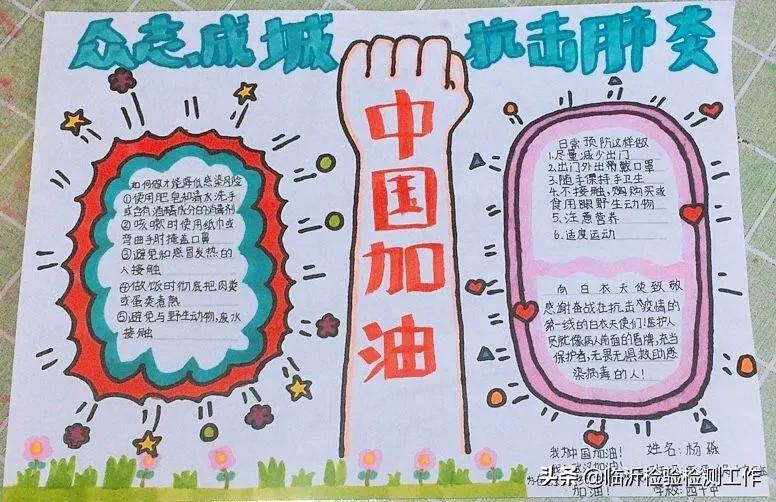 众志成城 抗击肺炎
中国加油
如何做才能降低感染风险
①使用肥皂和清水洗手
或含有酒精成分的消毒剂
②咳嗽时使用纸巾或
弯曲手肘掩盖口鼻
③避免和感冒发热的
人接触
④做饭时彻底把肉类
或蛋类煮熟
⑤避免与野生动物,废水
接触
日常预防这样做
1.尽量减少出门
2.出门外出带戴口罩
3.随手保持手卫生
4.不接触,购买或
食用野生动物
5.注意营养
6.适度运动
向白衣天使致敬
感谢奋战在抗击疫情的
第一线的白衣天使们!医护人
员就像病人前面的盾牌,充当
保护者,无畏无惧救助感
染病毒的人!
我为中国加油!
姓名:杨
加油!
头条@临沂检验检测工作